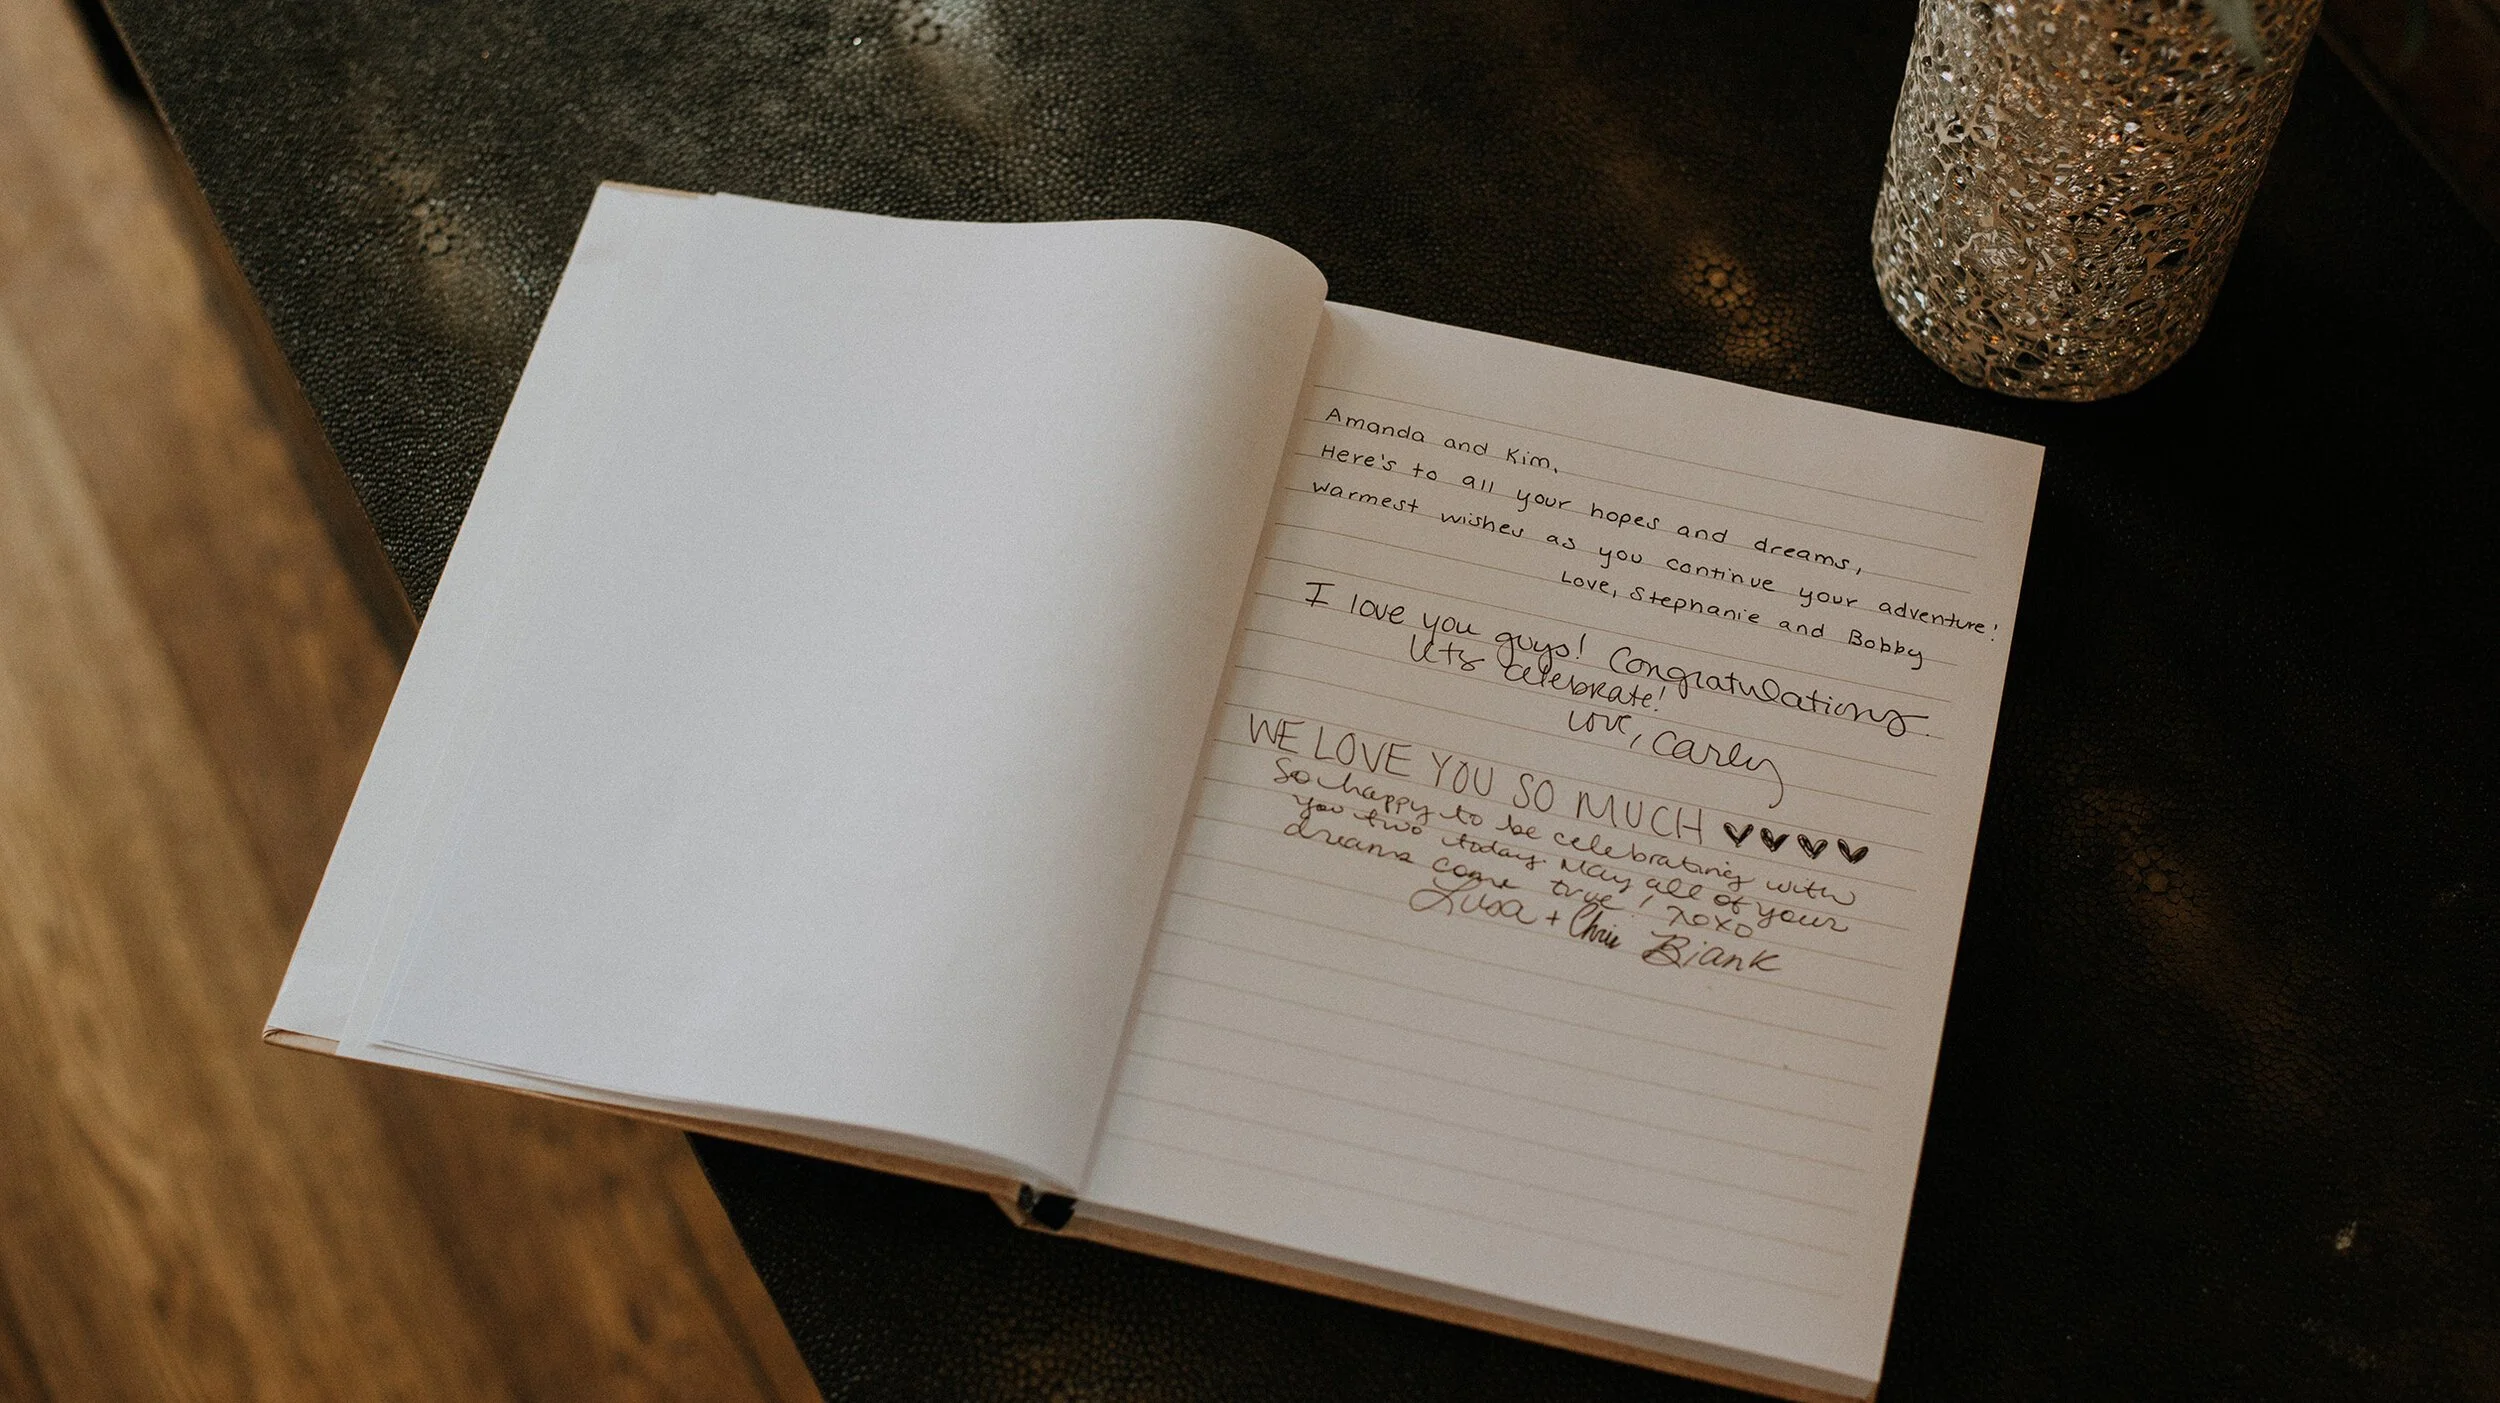 Amanda and Kim,
Here's to all your hopes and dreams,
warmest wishes as you continue your adventure!
Love, Stephanie and Bobby
I love you guys! Congratulations.
Lets celebrate!
Love, Carley
WE LOVE YOU SO MUCH ♥♥♥♥
So happy to be celebrating with
you two today. May all of your
dreams come true! xoxo
Lusa + Chris Biank